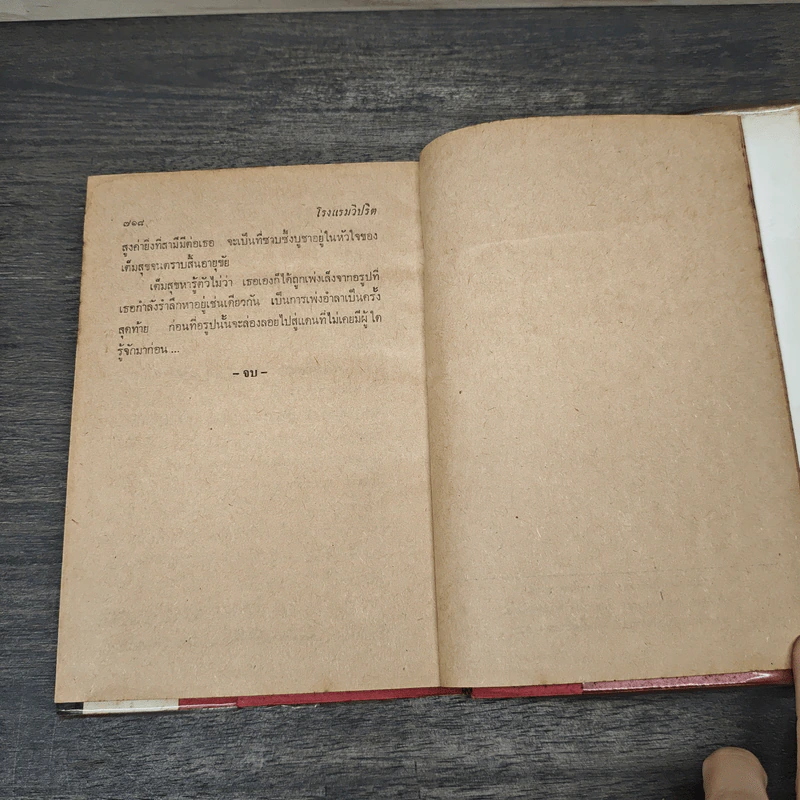 ๗๑๘
โรงแรมวิปริต
สูงค่ายิ่งที่สามีมีต่อเธอ จะเป็นที่ซาบซึ้งบูชาอยู่ในหัวใจของ
เต็มสุขจะตราบสิ้นอายุขัย
เต็มสุขหารู้ตัวไม่ว่า เธอเองก็ได้ถูกเพ่งเล็งจากอรูปที่
เธอกำลังรำลึกหาอยู่เช่นเดียวกัน เป็นการเพ่งอำลาเป็นครั้ง
สุดท้าย ก่อนที่อรูปนั้นจะล่องลอยไปสู่แดนที่ไม่เคยมีผู้ใด
รู้จักมาก่อน ...
– จบ –